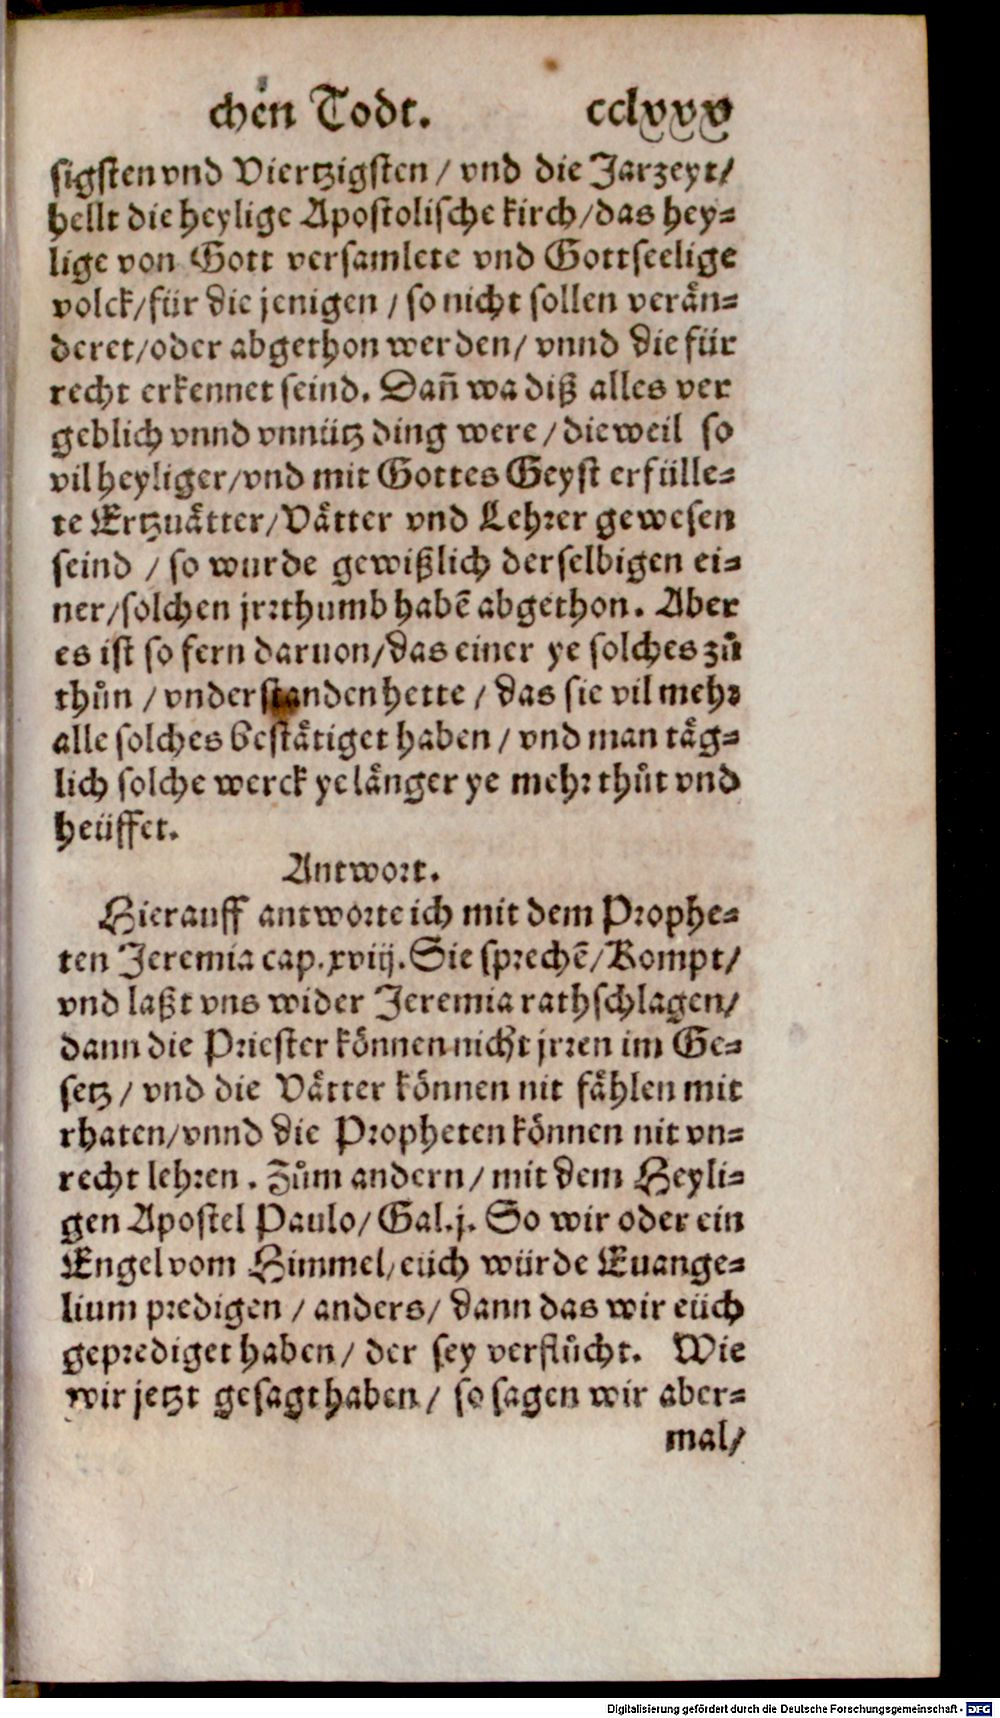 chen Todt. cclxxx
sigsten vnd Viertzigsten / vnd die Jarzeyt/
hellt die heylige Apostolische kirch/das hey⸗
lige von Gott versamlete vnd Gottseelige
volck/für die jenigen / so nicht sollen verän⸗
deret/oder abgethon werden/ vnnd die für
recht erkennet seind. Dañ wa diß alles ver
geblich vnnd vnnütz ding were / dieweil so
vil heyliger/vnd mit Gottes Geyst erfülle⸗
te Ertzuätter/Vätter vnd Lehrer gewesen
seind / so wurde gewißlich derselbigen ei⸗
ner/solchen jrrthumb habē abgethon. Aber
es ist so fern daruon/das einer ye solches zů
thůn / vnderstanden hette / das sie vil mehr
alle solches bestätiget haben / vnd man täg⸗
lich solche werck ye länger ye mehr thůt vnd
heüffet.
Antwort.
Hierauff antworte ich mit dem Prophe⸗
ten Jeremia cap. xviij. Sie sprechē/Kompt/
vnd laßt vns wider Jeremia rathschlagen/
dann die Priester können nicht jrren im Ge⸗
setz / vnd die Vätter können nit fählen mit
rhaten/vnnd die Propheten können nit vn⸗
recht lehren. Zům andern / mit dem Heyli⸗
gen Apostel Paulo/ Gal.j. So wir oder ein
Engel vom Himmel/eüch würde Euange⸗
lium predigen / anders/ dann das wir eüch
geprediget haben/ der sey verflůcht. Wie
wir jetzt gesagt haben / so sagen wir aber⸗
mal/
Digitalisierung gefördert durch die Deutsche Forschungsgemeinschaft - DFG